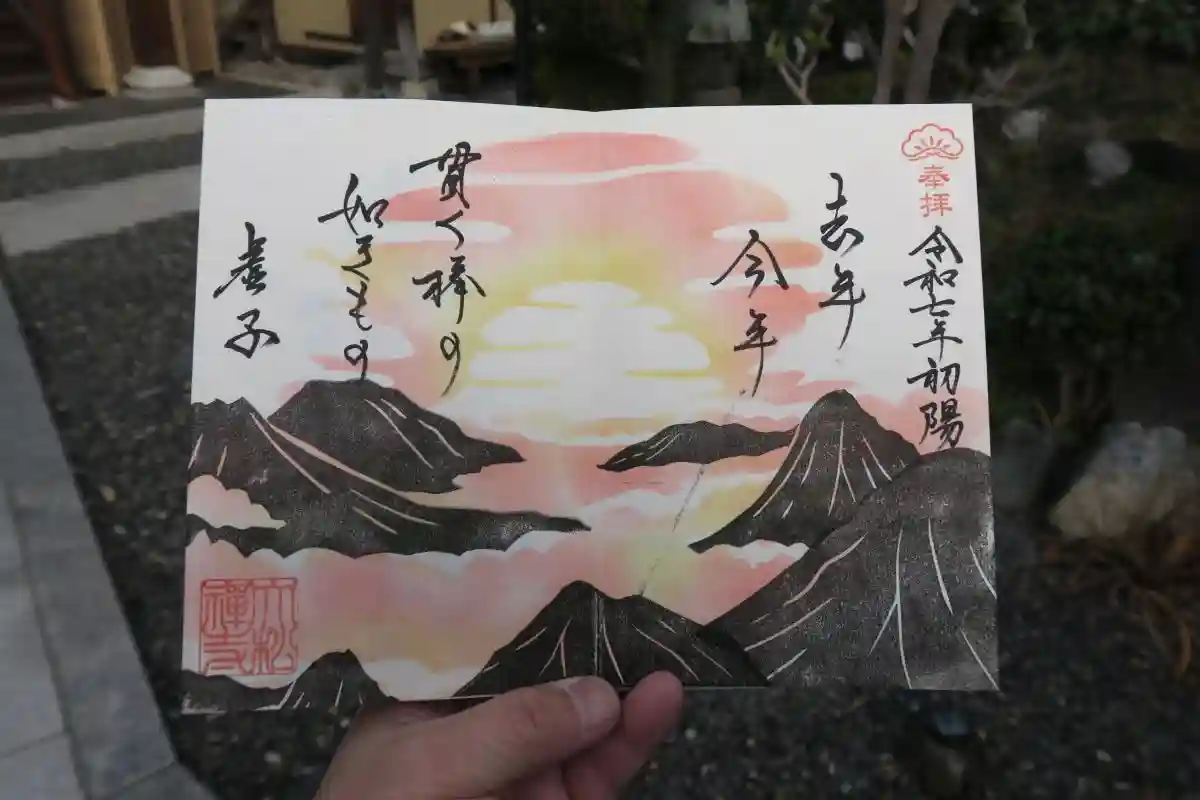 奉拝
令和七年初陽
去年
今年
貫く棒の
如きもの
虚子
六松
禅寺